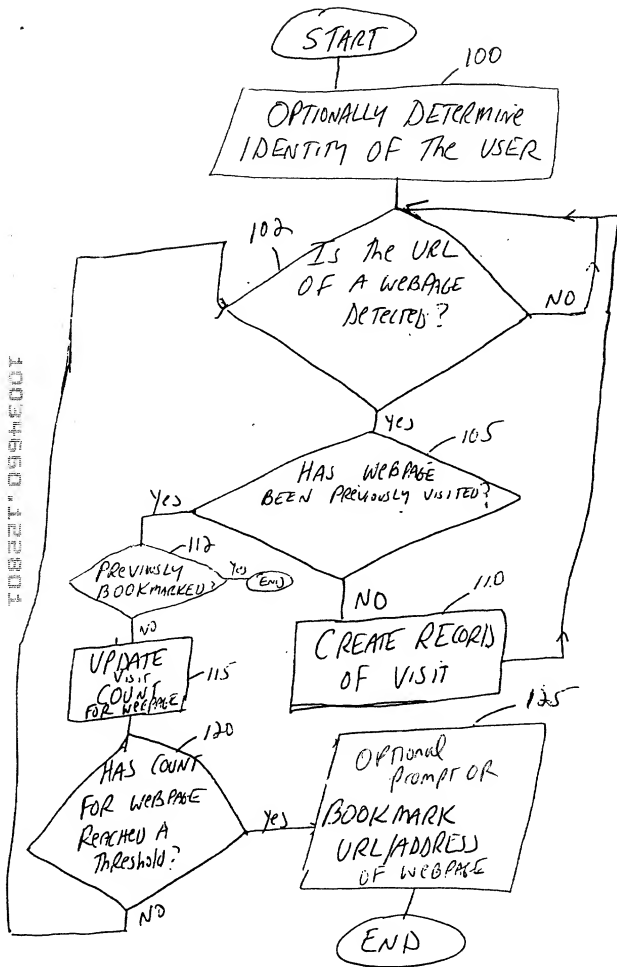 START
100
OPTIONALLY DETERMINE
IDENTITY OF THE USER
102
Is the URL
OF A WEBPAGE
DETECTED?
NO
Yes
105
HAS WEBPAGE
BEEN PREVIOUSLY VISITED?
Yes
112
PREVIOUSLY
BOOKMARKED?
Yes
END
NO
110
CREATE RECORD
OF VISIT
NO
UPDATE
VISIT
COUNT
FOR WEBPAGE
115
120
HAS COUNT
FOR WEBPAGE
REACHED A
Threshold?
Yes
NO
125
OPTIONAL
Prompt OR
BOOKMARK
URL/ADDRESS
OF WEBPAGE
END
10034660.122801